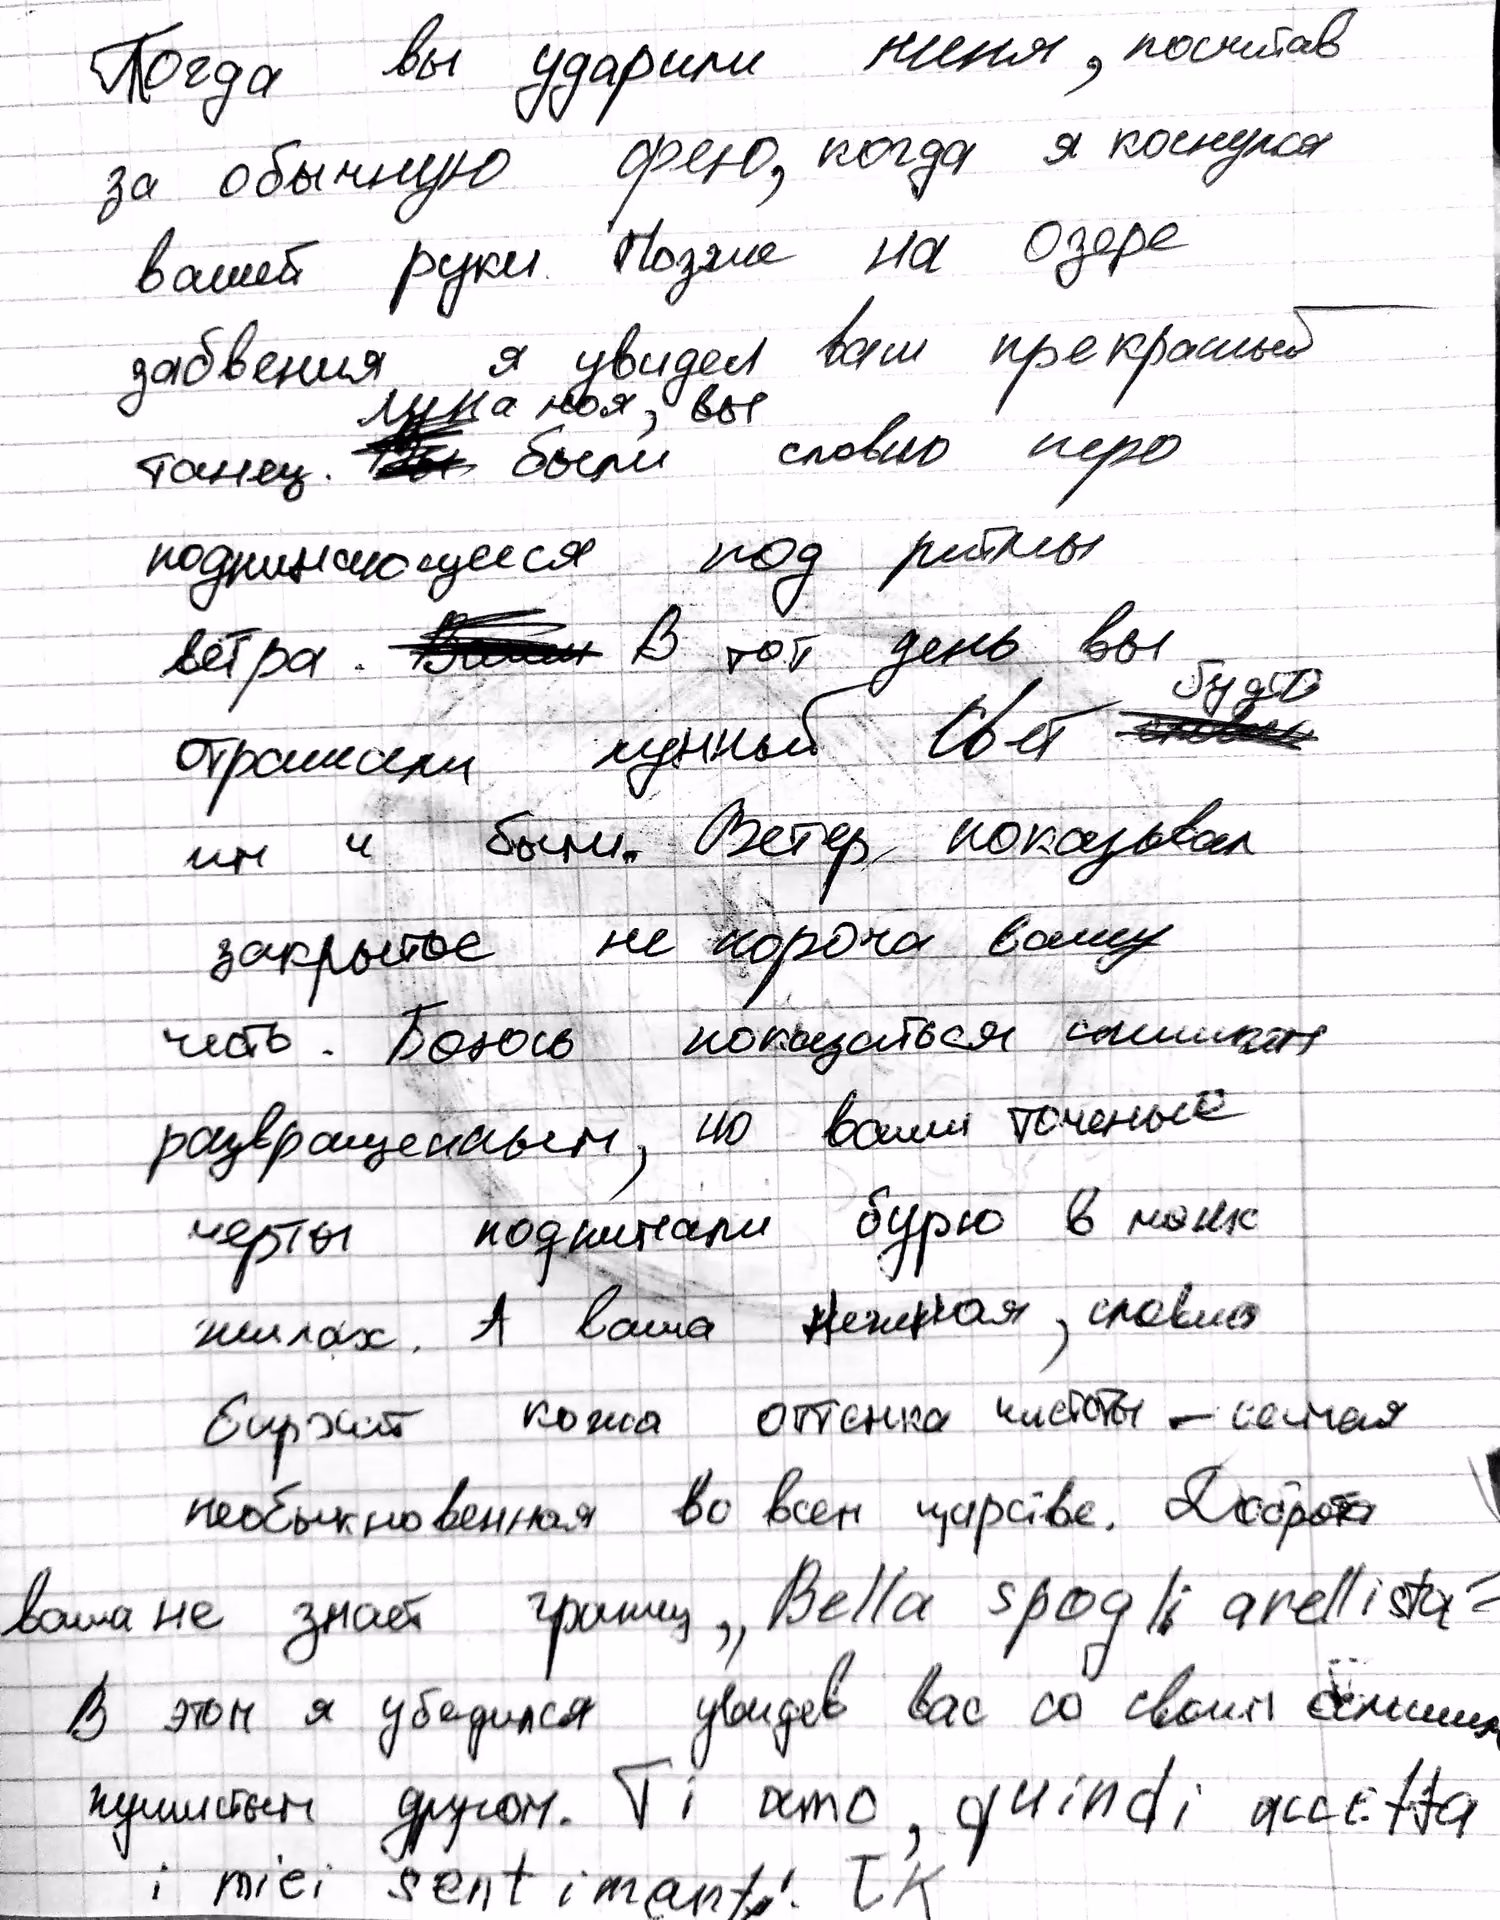 Тогда вы ударили меня, посчитав
за обычную фею, когда я коснулся
вашей руки. Позже на озере
забвения я увидел ваш прекрасный
луна моя, вы
танец. были словно перо
поднимающееся под ритмы
ветра. В тот день вы
будто
отражали лунный свет
им и были. Ветер показывал
закрытое не пороча вашу
честь. Боюсь показаться слишком
развращенным, но ваши точеные
черты поднимали бурю в моих
жилах. А ваша нежная, словно
бархат кожа оттенка чистоты - самая
необыкновенная во всем царстве. Доброта
ваша не знает границ, „Bella spogli
В этом я убедился увидев вас со своим
пушистым другом. Ti amo, quindi accetta
i miei sentimenti. IK